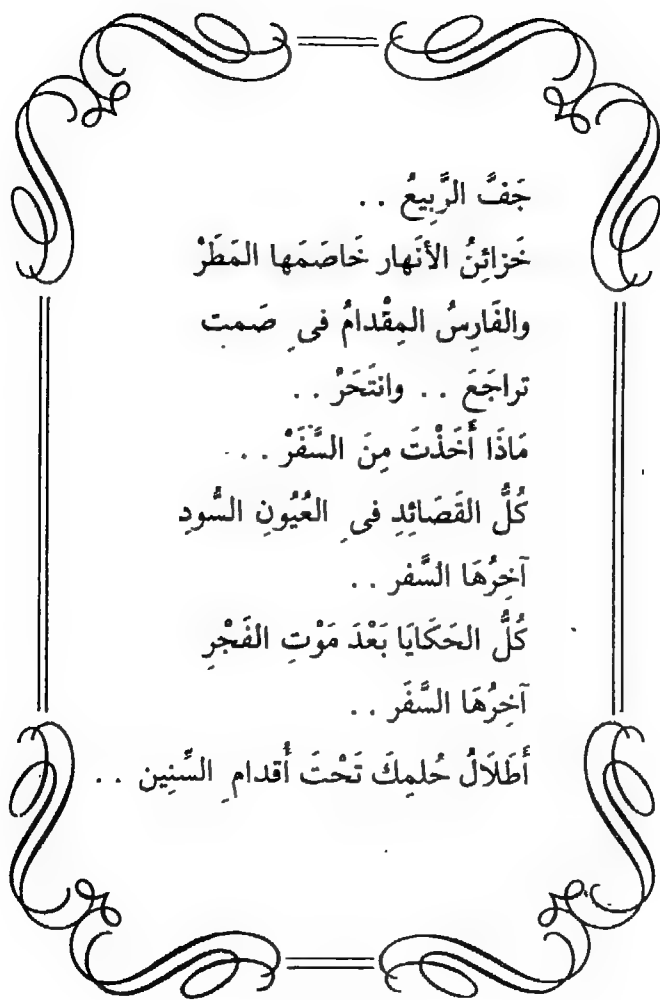 جَفَّ الرَّبِيعُ . .
خَزائِنُ الأنَهار خَاصَمَها المَطَرْ
والفَارِسُ المِقْدامُ فى ِ صَمت
تراجَعَ . . وانتَحَرْ . .
مَاذَا أَخَذْتَ مِنَ السَّفَرْ . .
كُلُّ القَصَائِدِ فى ِ العُيُونِ السُّودِ
آخِرُهَا السَّفر . .
كُلُّ الحَكَايَا بَعْدَ مَوْتِ الفَجْرِ
آخِرُهَا السَّفَر . .
أَطَلَالُ حُلمِكَ تَحْتَ أَقدام ِ السِّنِين . .